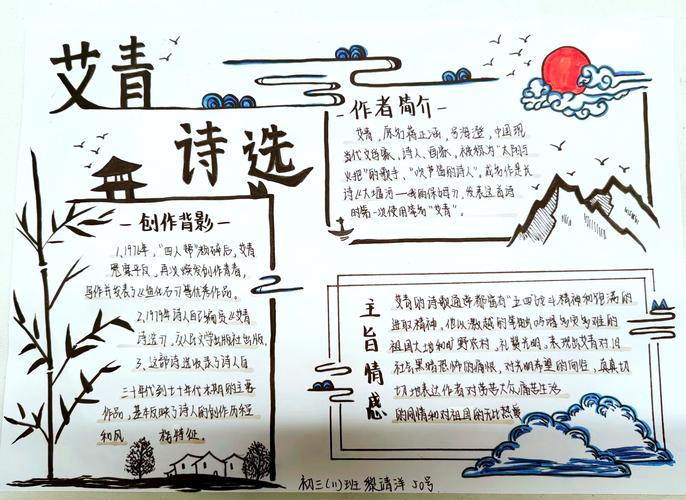 艾青
诗选
-作者简介-
艾青，原名蒋正涵，号海澄，中国现
当代文学家、诗人、画家，被称为"太阳与
火把"的歌手、"吹芦笛的诗人"，成名作是长
诗《大堰河——我的保姆》，发表这首诗
时第一次使用笔名"艾青"。
-创作背影-
1、1976年，"四人帮"被粉碎后，艾青
冤案平反，再次焕发创作青春，
写作并发表了《鱼化石》等优秀作品。
2、1979年诗人自己编员《艾青
诗选》，人民文学出版社出版
3、这部诗选收录了诗人自
二十年代到七十年代末期的主要
作品，基本反映了诗人的创作历程
和风 格特征。
主旨情感
艾青的诗歌通常都富有"五四"战斗精神和饱满的
进取精神，他以激越的笔触吟唱多灾多难的
祖国大地和旷野农村，礼赞光明。表现出艾青对旧
社会黑暗恐怖的痛恨，对光明希望的向往，真真切
切地表达作者对劳苦大众痛苦生活
的同情和对祖国的无比热爱
初三(11)班 黎靖洋 50号